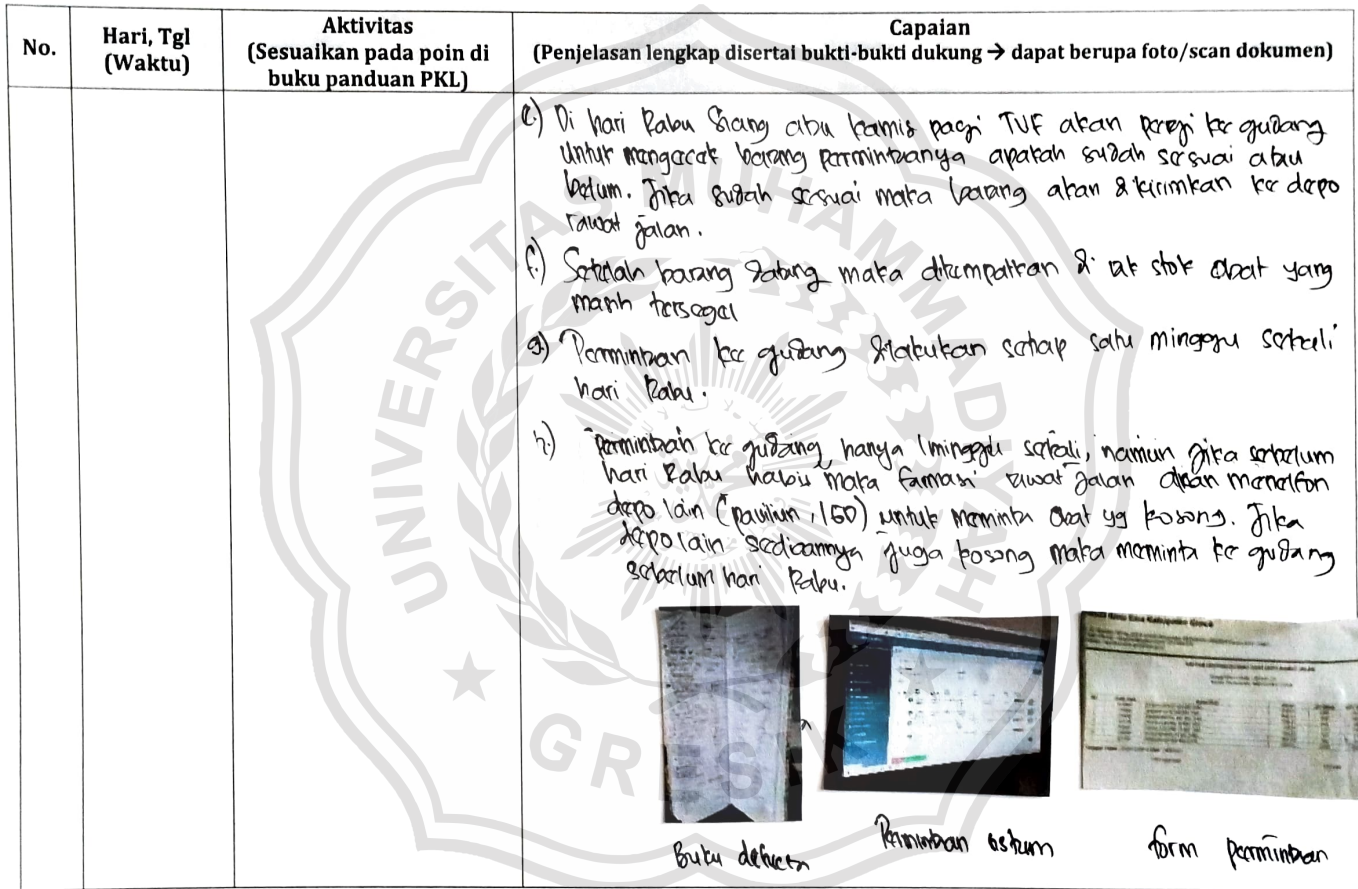 No.
Hari, Tgl
(Waktu)
Aktivitas
(Sesuaikan pada poin di
buku panduan PKL)
Capaian
(Penjelasan lengkap disertai bukti-bukti dukung → dapat berupa foto/scan dokumen)
e.) Di hari Rabu Siang atau kamis pagi TVF akan pergi ke gudang
untuk mengecek barang permintaanya apakah sudah sesuai atau
belum. Jika sudah sesuai maka barang akan dikirimkan ke depo
rawat jalan.
f.) Setelah barang datang maka ditempatkan di rak stok obat yang
masih tersegel
g.) Permintaan ke gudang dilakukan setiap satu minggu sekali
hari Rabu.
h.) permintaan ke gudang hanya 1 minggu sekali, namun jika sebelum
hari Rabu habis maka farmasi rawat jalan akan menelfon
depo lain (paviliun, IGD) untuk meminta obat yg kosong. Jika
depo lain sediaannya juga kosong maka meminta ke gudang
sebelum hari Rabu.
Buku defecta
Permintaan
form permintaan
UNIVERSITAS MUHAMMADIYAH
GRESIK